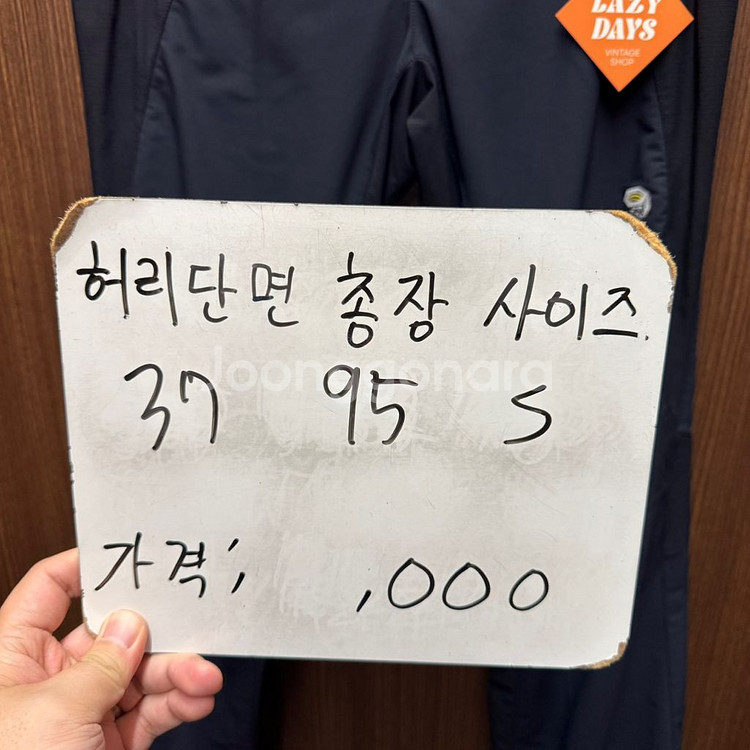 LAZY
DAYS
VINTAGE
SHOP
허리단면 총장 사이즈
Joonggonara
37 95 S
가격; ,000